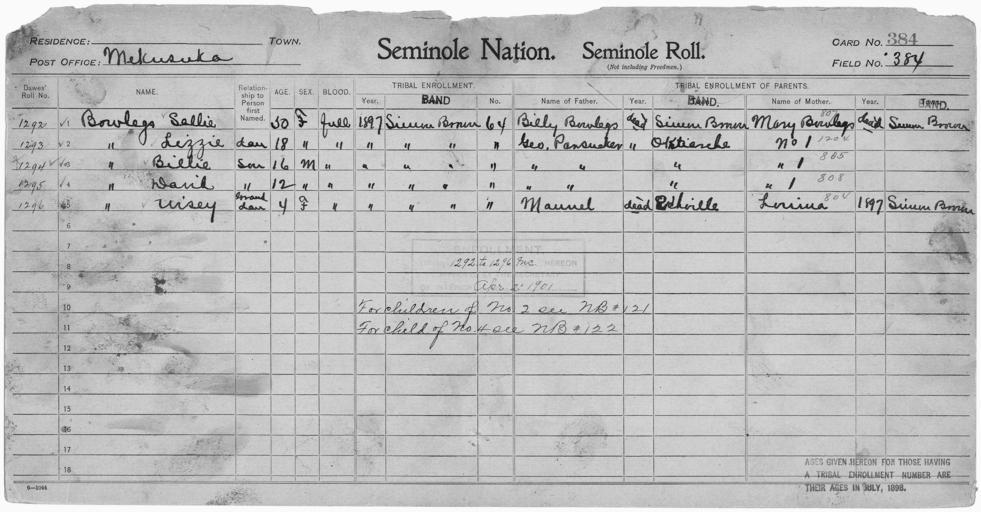 RESIDENCE: TOWN.
POST OFFICE: Mekusuka
Seminole Nation. Seminole Roll.
(Not including Freedmen.)
CARD NO. 384
FIELD NO. 384
Dawes' Roll No. NAME. Relationship to Person first Named. AGE. SEX. BLOOD. TRIBAL ENROLLMENT. TRIBAL ENROLLMENT OF PARENTS.
Year. BAND No. Name of Father. Year. BAND. Name of Mother. Year. BAND.
1292 √1 Bowlegs Sallie 50 F full 1897 Simon Brown 64 Billy Bowlegs dead Simon Brown Mary Bowlegs dead Simon Brown
1293 √2 " √ Lizzie dau 18 " " " " " " Geo. Pansucker " No 1 1204
1294 √3 " √ Billie Son 16 M " " " " " " " " " 1 805
1295 √4 " David " 12 " " " " " " " " " " 1 808
1296 √5 " Wisey Grand dau 4 F " " " " " Maunel dead Louina 804 1897 Simon Brown
6
7
ENROLLMENT
8 1292 to 1296 Inc. HEREON
9 Apr 2 1901
10 For children of No. 2 see NB #121
11 For child of No. 4 see NB #122
12
13
14
15
16
17
18
AGES GIVEN HEREON FOR THOSE HAVING
A TRIBAL ENROLLMENT NUMBER ARE
THEIR AGES IN JULY, 1898.